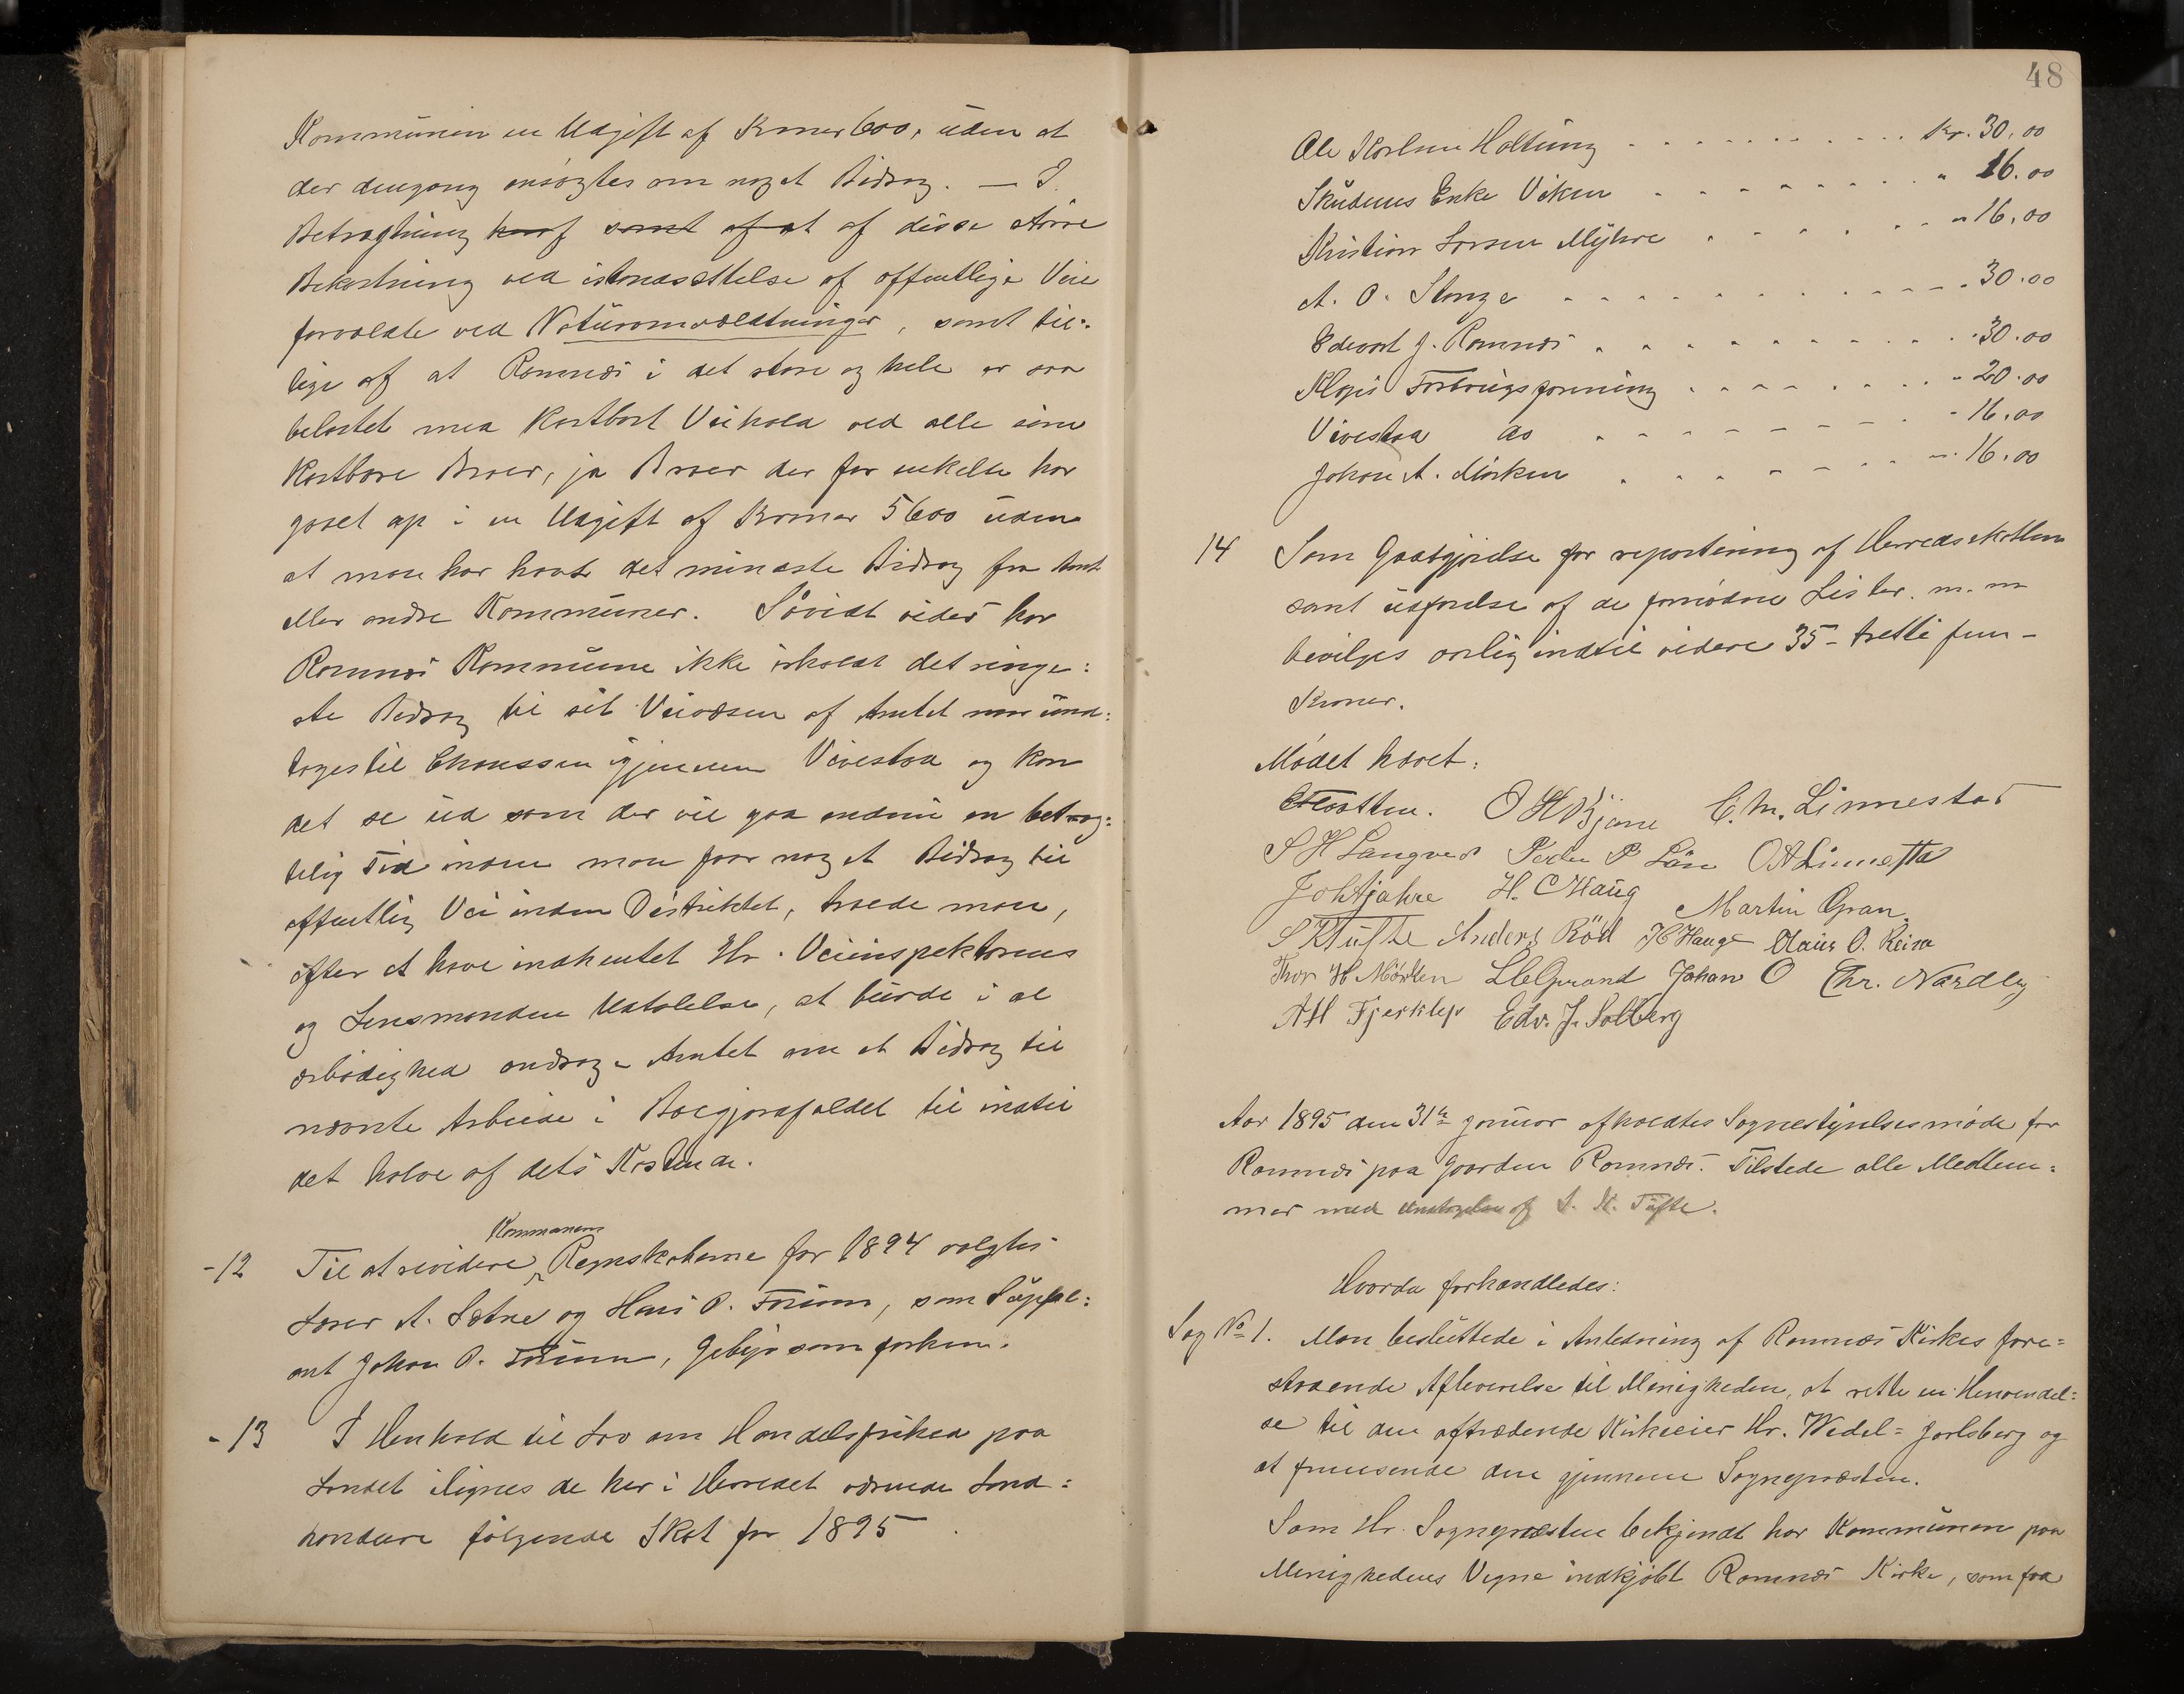 Kommunen en Udgift af Kroner 600, uden at
der dengang ansøgtes om noget Bidrag. — I
Betragtning heraf samt af at af disse större
Bekostning ved istandsættelse af offentlige Veie
forvoldte ved Naturomvæltninger, samt til-
lige af at Ramnæs i det store og hele er saa
belastet med kostbart Veihold ved alle sine
kostbare Broer, ja Broer der for enkelte har
gaaet op i en Udgift af Kroner 5600 uden
at man har havt det mindste Bidrag fra Amt
eller andre Kommuner. Såvidt vides har
Ramnæs Kommune ikke erholdt det ringe:
ste Bidrag til sit Veivæsen af Amtet naar und:
tages til Chausseen igjennem Vivestad og kan
det se ud som der vil gaa endnu en betrag:
telig Tid inden man faar noget Bidrag til
offentlig Vei inden Distriktet, troede man,
efter at have indhentet Hr. Veiinspektørens
og Lensmandens Udtalelse, at burde i al
ærbødighed andrage Amtet om et Bidrag til
nævnte Arbeide i indtil
det halve af dets Kostende.
Kommunens
-12 Til at revidere Regnskaberne for 1894 valgtes
Lærer A. Sætre og Hans P. som Supple:
ant Johan P. Gebyr som forhen.
-13 I Henhold til Lov om Handelsfrihed paa
Landet ilignes de her i Herredet værende Land:
handlere følgende Skat for 1895
48
Ole Karlsen Holtung Kr. 30.00
Skudenes Enke Viken " 16.00
Kristian Larsen Myhre " 16.00
A. O. Stange " 30.00
Edvart J. Ramnæs " 30.00
Klopp Forbrugsforening " 20.00
Vivestad do " 16.00
Johan A. Mörken " 16.00
14 Som Godtgjörelse for repartering af Herredsskatten
samt udförelse af de fornødne Lister m. m
bevilges aarlig indtil videre 35 - tretti fem -
Kroner.
Mødet hævet:
O H Bjane C. M. Linnestad
S H Langved Peder P. O A Linnestad
H. C Haug Martin Gran.
S K Tufte Anders Röd H Hauge Claus O. Reisa
Thor H Mørken Johan O Chr. Nordby
A H Fjerklep Edv. J. Solberg
Aar 1895 den 31te januar afholdtes Sognestyrelsesmøde for
Ramnæs paa Gaarden Ramnæs. Tilstede alle Medlem=
mer med Undtagelse af S. K. Tufte.
Hvorda forhandledes:
Sag No 1. Man besluttede i Anledning af Ramnæs Kirkes fore=
staaende Afleverelse til Menigheden, at rette en Henvendel=
se til den aftrædende Kirkeeier Hr. Wedel=Jarlsberg og
at fremsende den gjennem Sognepræsten.
Som Hr. Sognepræsten bekjendt har Kommunen paa
Menighedens Vegne indkjöbt Ramnæs Kirke, som fra